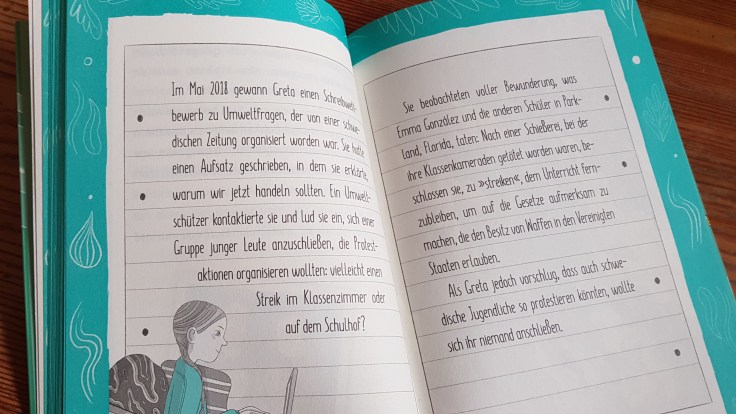 Im Mai 2018 gewann Greta einen Schreibwett-
bewerb zu Umweltfragen, der von einer schwe-
dischen Zeitung organisiert worden war. Sie hatte
einen Aufsatz geschrieben, in dem sie erklärte,
warum wir jetzt handeln sollten. Ein Umwelt-
schützer kontaktierte sie und lud sie ein, sich einer
Gruppe junger Leute anzuschließen, die Protest-
aktionen organisieren wollten: vielleicht einen
Streik im Klassenzimmer oder
auf dem Schulhof?
Sie beobachteten voller Bewunderung, was
Emma González und die anderen Schüler in Park-
land, Florida, taten: Nach einer Schießerei, bei der
ihre Klassenkameraden getötet worden waren, be-
schlossen sie, zu »streiken«, dem Unterricht fern-
zubleiben, um auf die Gesetze aufmerksam zu
machen, die den Besitz von Waffen in den Vereinigten
Staaten erlauben.
Als Greta jedoch vorschlug, dass auch schwe-
dische Jugendliche so protestieren könnten, wollte
sich ihr niemand anschließen.